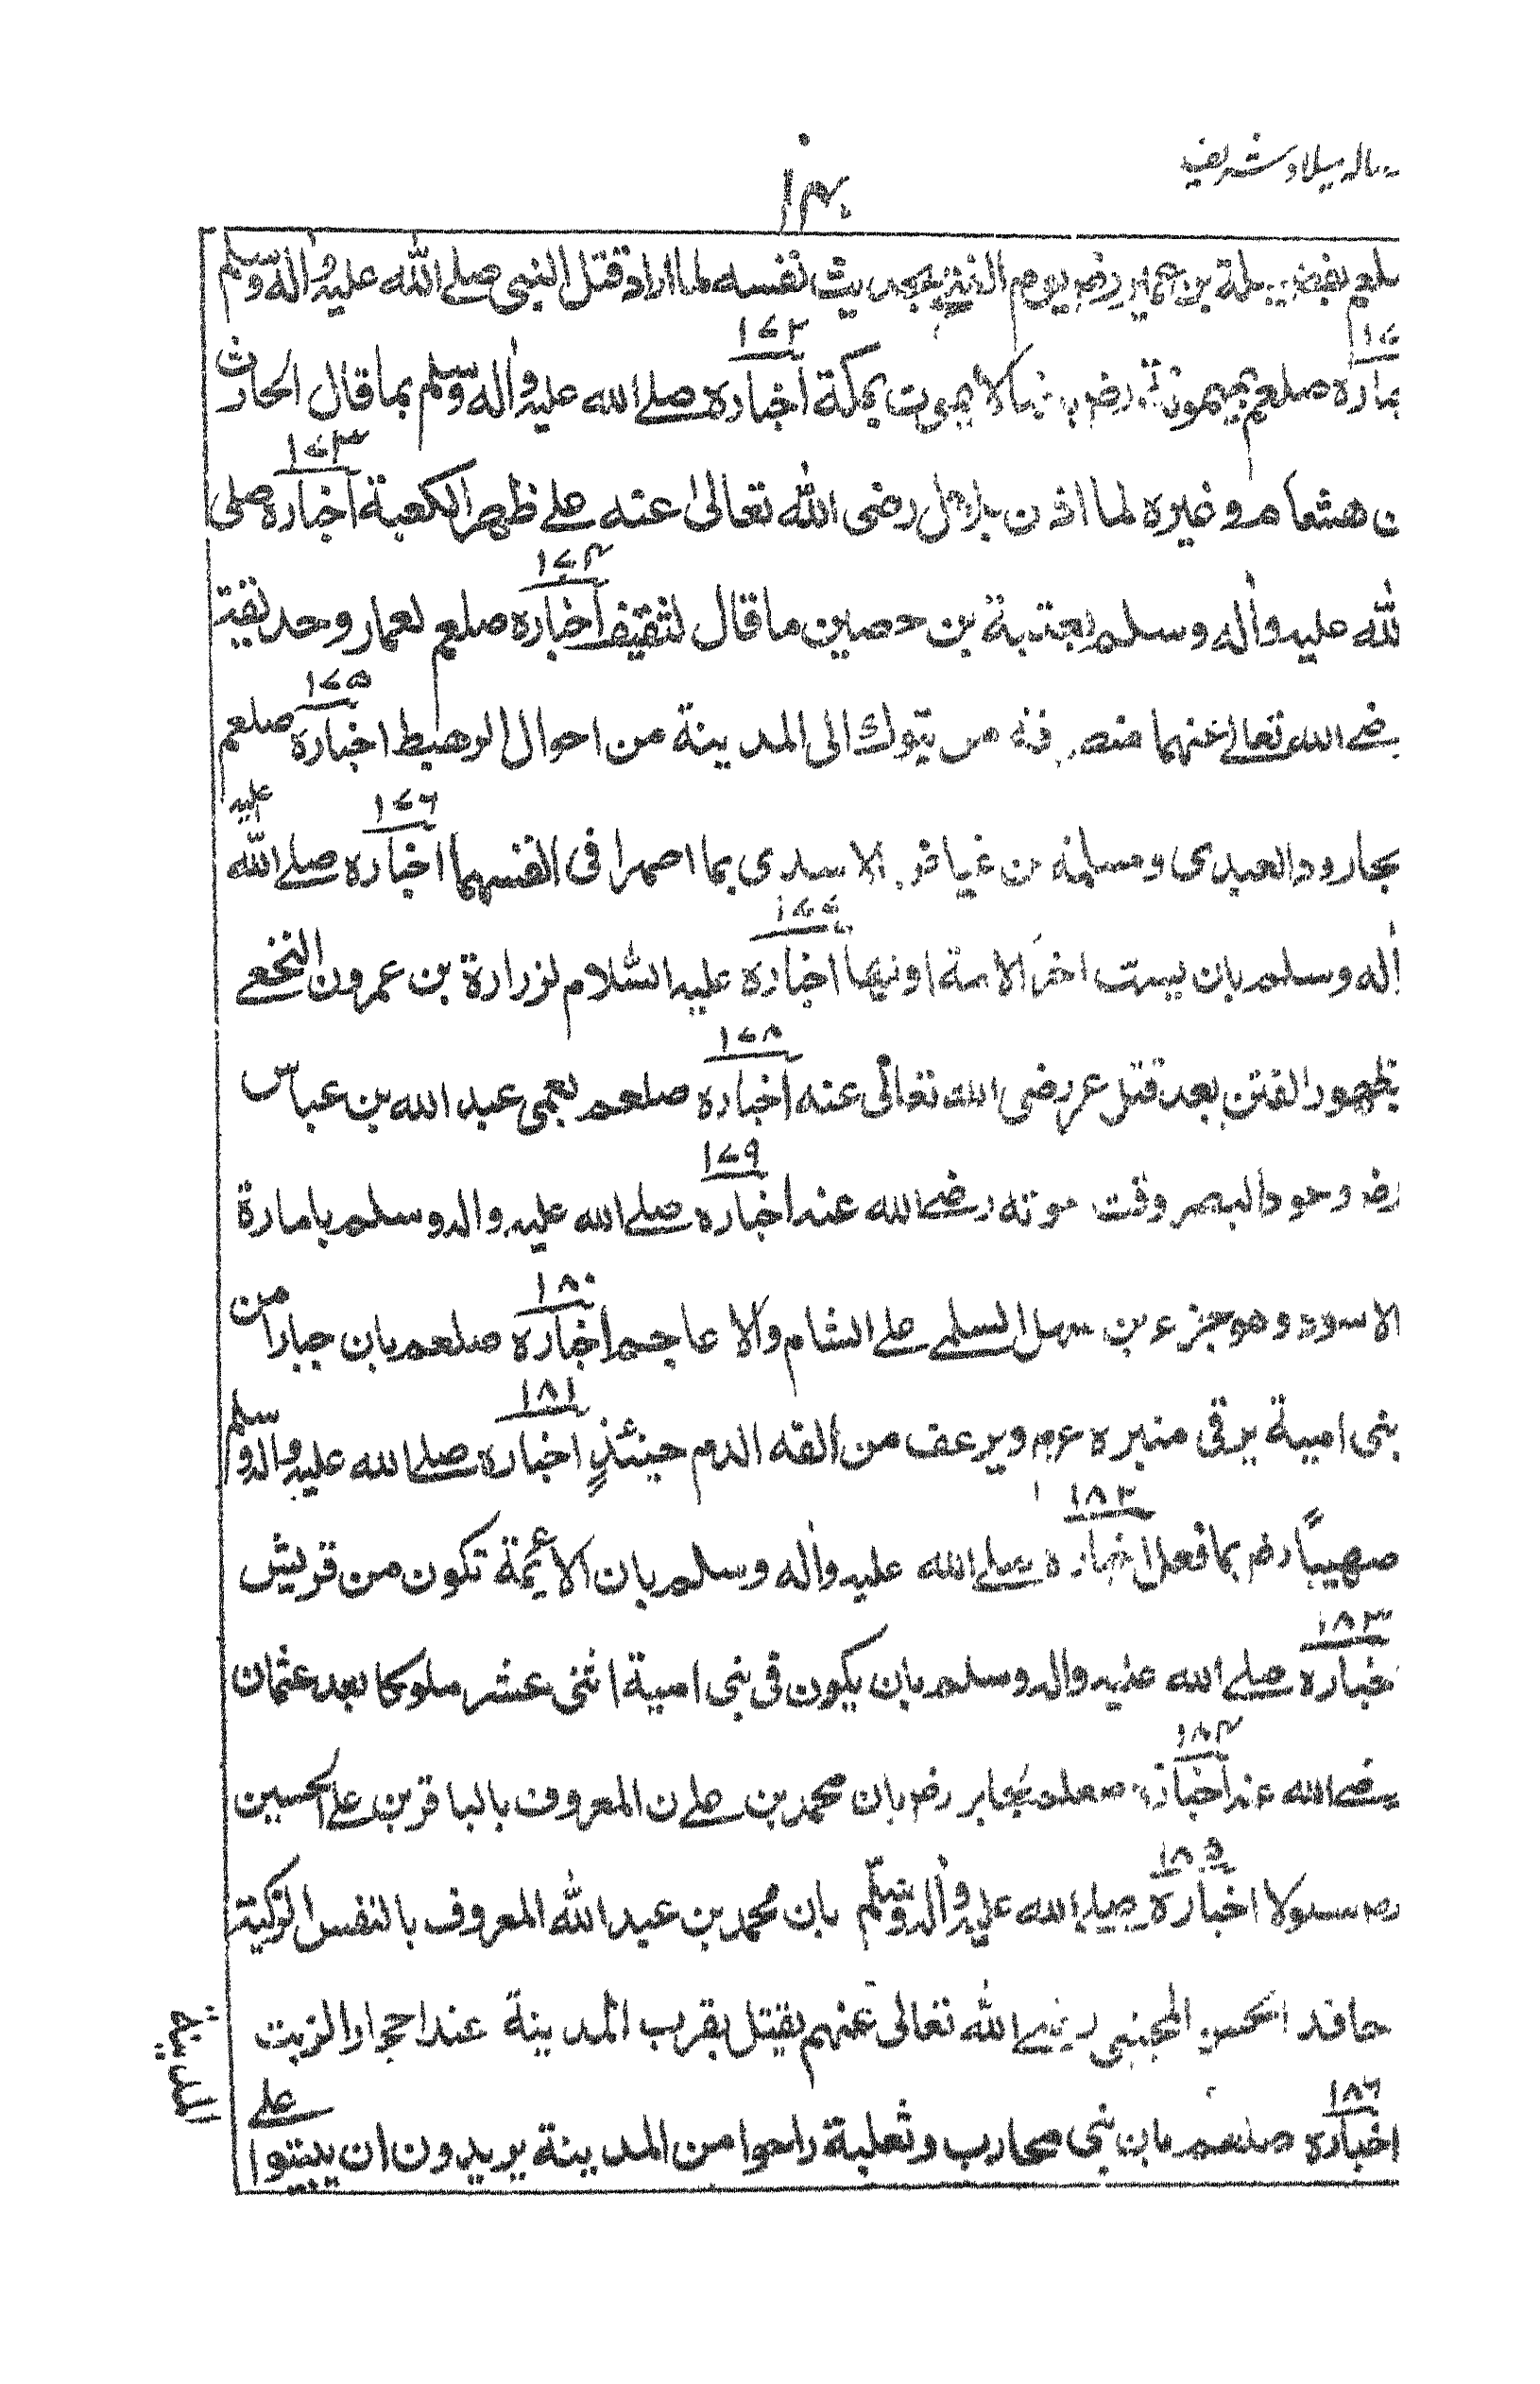 رساله میلاد شریف
۱۰۴
صلعم بفضيلة بن عمير رضه يوم الفتح بحديث نفسه لما اراد قتل النبى صلے الله عليه واٰله وسلم
صلعم بميمونة رضه بانها لا يموت بمكة اخباره صلے الله عليه واٰله وسلم بما قال الحارث
۱۷۲
ن هشام وغيره لما اذن بلال رضى الله تعالىٰ عنه علے ظهر الكعبة اخباره صلى
۱۷۳
لله عليه واٰله وسلم بعتبة بن حصين ما قال لثقيف اخباره صلعم لعمار وحذيفة
۱۷۴
ضے الله تعالے عنهما من تبوك الى المدينة من احوال الرهط اخباره صلعم
۱۷۵
بجارود العبدى ومسلمة بن الاسدى بما اضمرا فى انفسهما اخباره صلے الله عليه
۱۷۶
اٰله وسلم بان اخر الامة اخباره عليه السلام لزرارة بن عمرون النخعے
۱۷۷
بظهور الفتن بعد قتل عمر رضى الله تعالىٰ عنه اخباره صلعم بعمى عبد الله بن عباس
۱۷۸
رضه وعود البصر وقت موته رضے الله عنه اخباره صلے الله عليه واله وسلم بامارة
۱۷۹
الاسود وهو جزء بن سهل السلمے علے الشام والاعاجم اخباره صلعم بان جبارا من
۱۸۰
بنى امية يرقى منبره عم ويرعف من انفه الدم حينئذٍ اخباره صلے الله عليه واله وسلم
۱۸۱
صهيبًا رضه بما فعل اخباره صلے الله عليه واٰله وسلم بان الائمة تكون من قريش
۱۸۲
خباره صلے الله عليه واله وسلم بان يكون فى بنى امية اثنى عشر ملوكا بعد عثمان
۱۸۳
رضے الله عنه اخباره صلعم بجابر رضه بان محمد بن على ن المعروف بالباقر بن علے الحسين
۱۸۴
اخباره صلے الله عليه واٰله وسلم بان محمد بن عبد الله المعروف بالنفس الزكية
۱۸۵
حافد الحسن المجتبى رضے الله تعالىٰ عنهم يقتل بقرب المدينة عند احجار الزيت
اخباره صلعم بان بنى محارب وثعلبة راحوا من المدينة يريدون ان يبيتوا علے
۱۸۶
المدينة